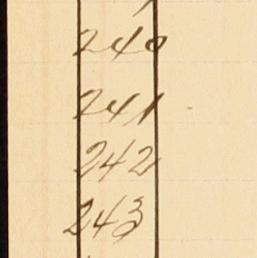 240
241
242
243